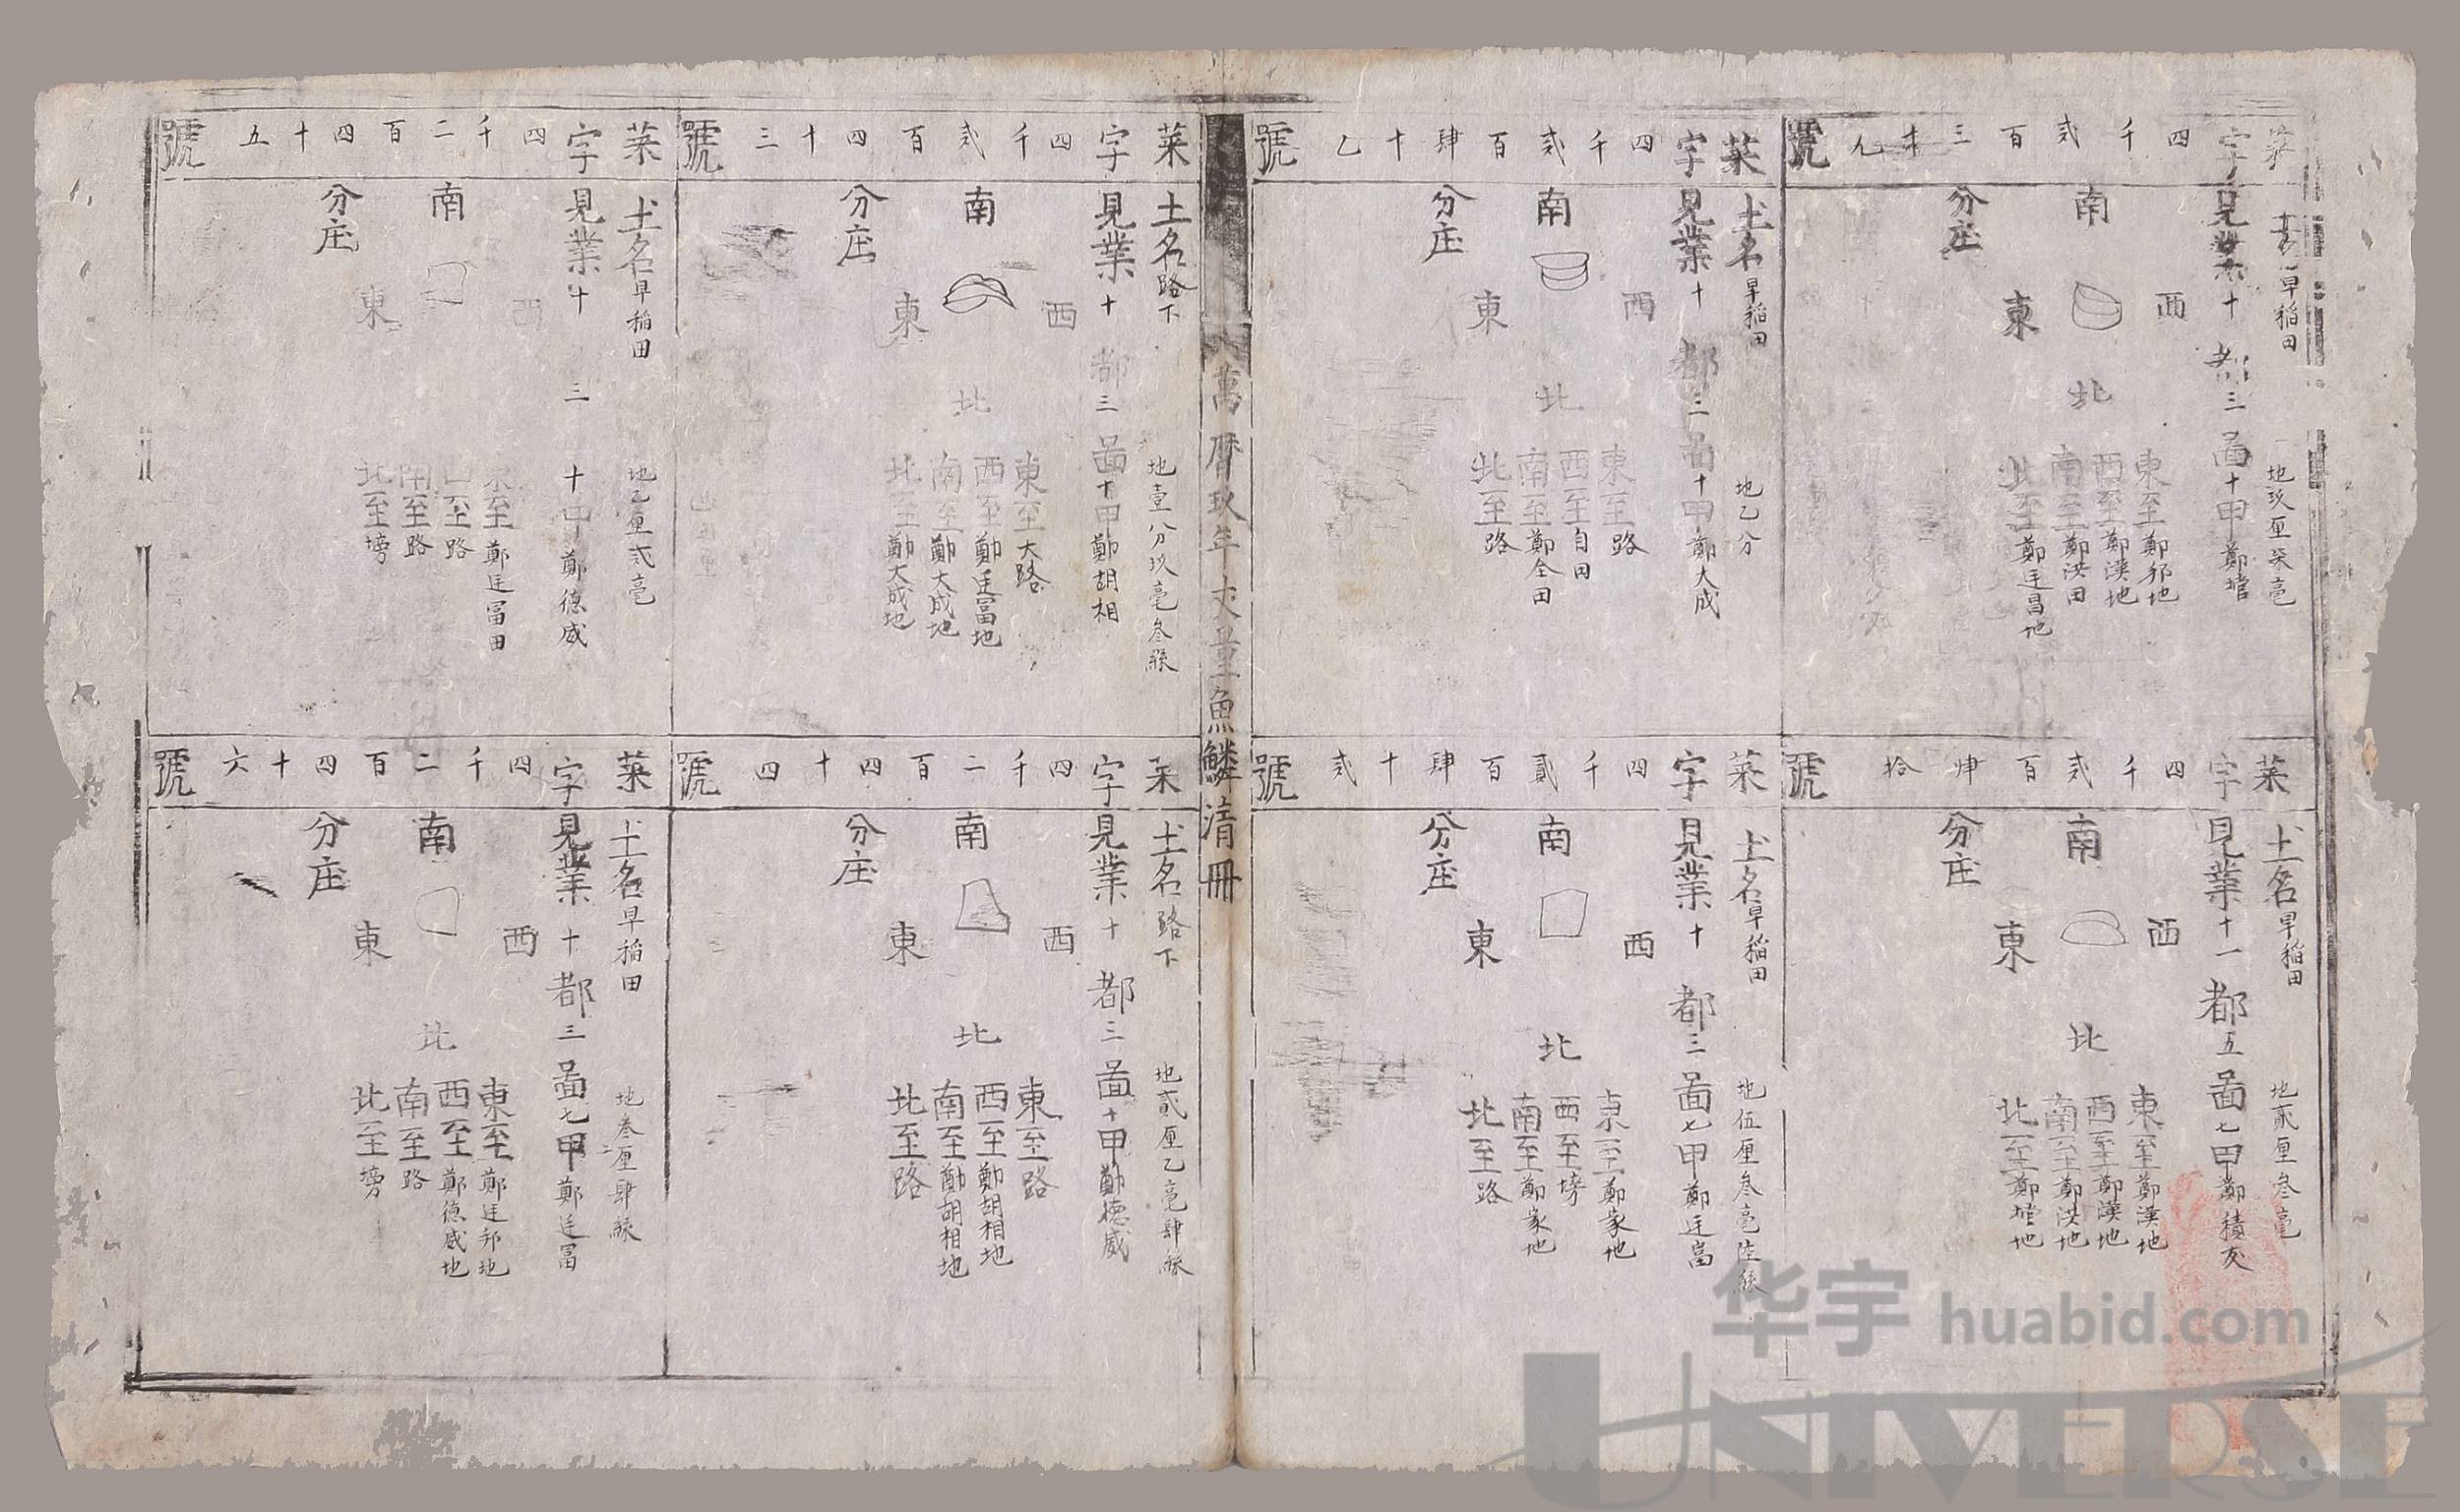 菜字四千貳百三十九號
土名早稻田
地玖厘柒毫
見業十都三啚十甲鄭墻
南
西
東
北
分庄
東至鄭邦地
西至鄭漢地
南至鄭洪田
北至鄭廷昌地
菜字四千貳百肆拾號
土名早稻田
地貳厘叁毫
見業十一都五啚七甲鄭積友
南
西
東
北
分庄
東至鄭漢地
西至鄭漢地
南至鄭洪地
北至鄭墻地
菜字四千貳百肆十乙號
土名早稻田
地乙分
見業十都三啚十甲鄭大成
南
西
東
北
分庄
東至路
西至自田
南至鄭全田
北至路
菜字四千貳百肆十貳號
土名早稻田
地伍厘叁毫陸絲
見業十都三啚七甲鄭廷富
南
西
東
北
分庄
東至鄭家地
西至塝
南至鄭家地
北至路
萬曆玖年丈量魚鱗清冊
菜字四千貳百四十三號
土名路下
地壹分玖毫叁絲
見業十都三啚十甲鄭胡相
南
西
東
北
分庄
東至大路
西至鄭廷富地
南至鄭大成地
北至鄭大成地
菜字四千二百四十四號
土名路下
地貳厘乙毫肆絲
見業十都三啚十甲鄭德威
南
西
東
北
分庄
東至路
西至鄭胡相地
南至鄭胡相地
北至路
菜字四千二百四十五號
土名早稻田
地乙厘貳毫
見業十三十甲鄭德威
南
西
東
分庄
東至鄭廷富田
西至路
南至路
北至塝
菜字四千二百四十六號
土名早稻田
地叁厘肆絲
見業十都三啚七甲鄭廷富
南
西
東
北
分庄
東至鄭廷邦地
西至鄭德威地
南至路
北至塝
华宇 huabid.com
UNIVERSE